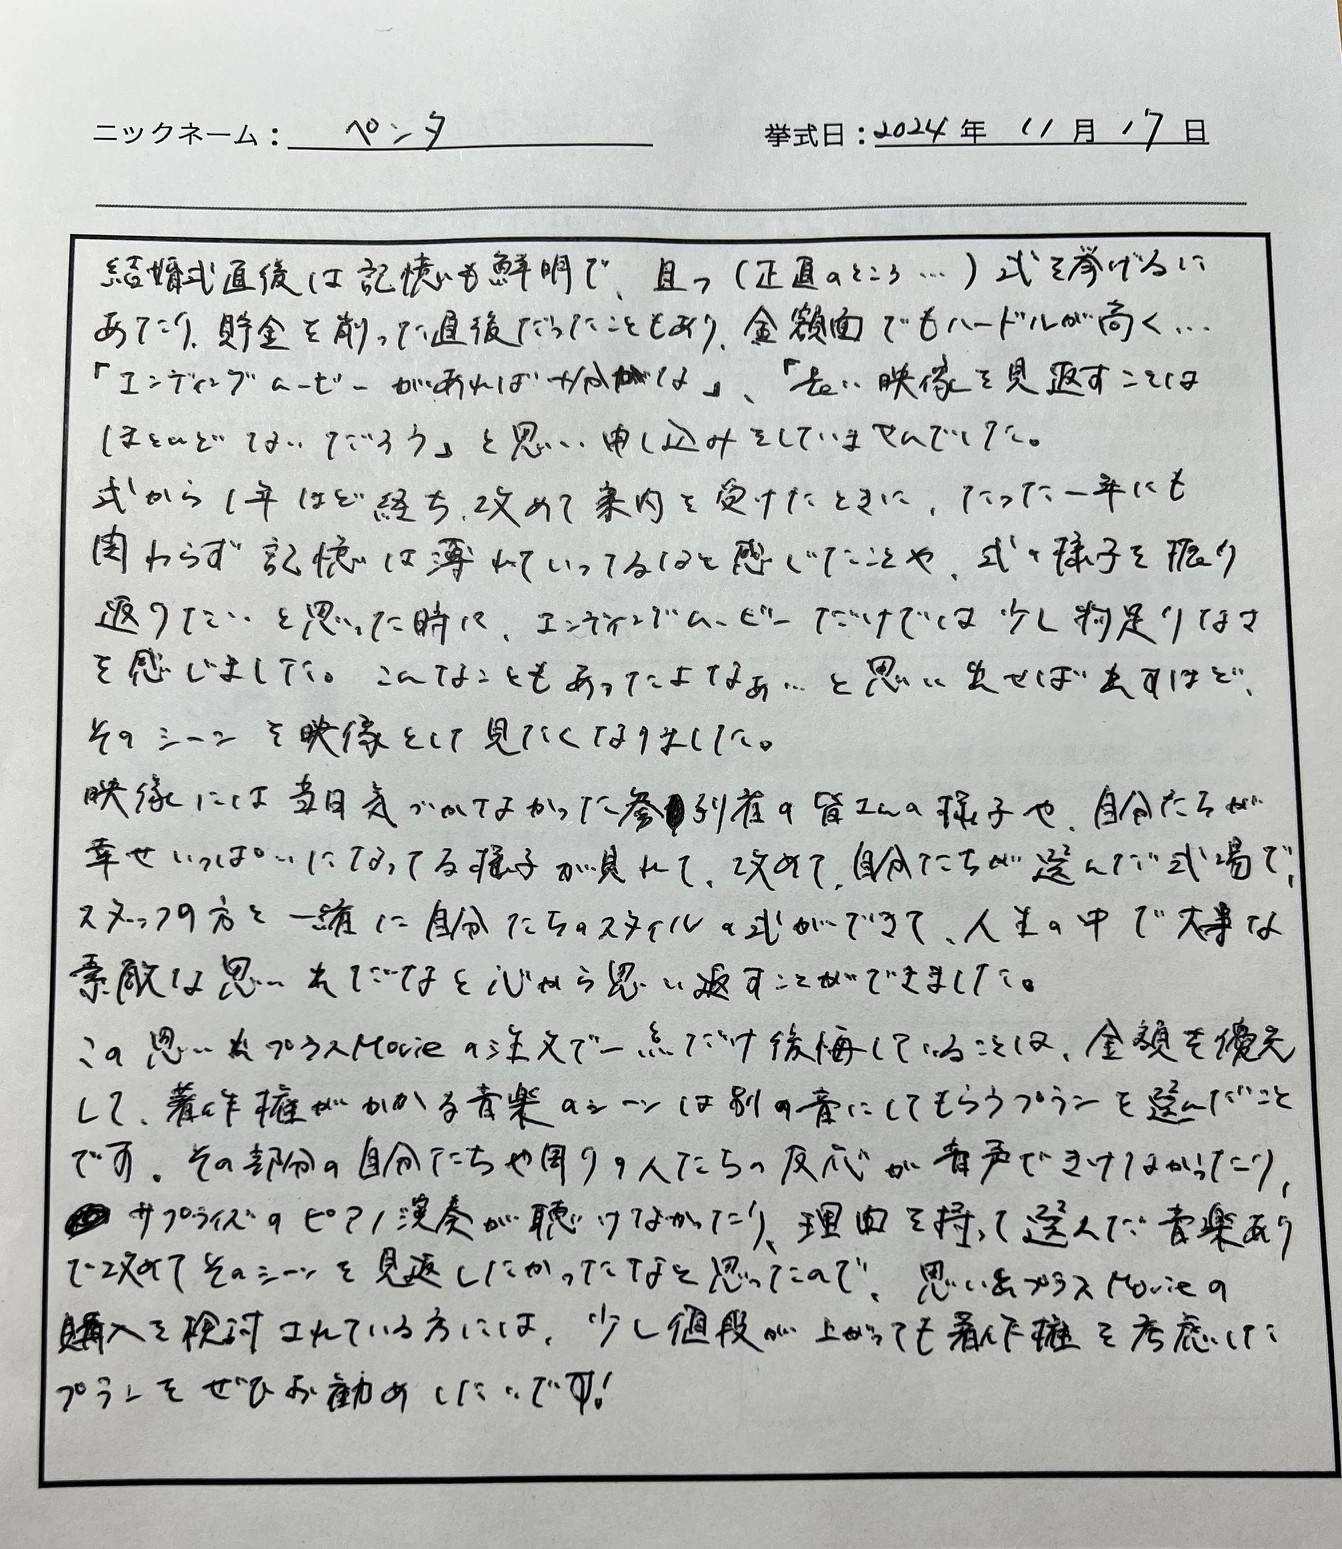 ニックネーム： ペンタ 挙式日：2024 年 11 月 17 日
結婚式直後は記憶も鮮明で、且つ（正直のところ…）式を挙げるに
あたり、貯金を削った直後だったこともあり、金額面でもハードルが高く…
「エンディングムービーがあれば十分かな」、「長い映像を見返すことは
ほとんどないだろう」と思い申し込みをしていませんでした。
式から1年ほど経ち、改めて案内を受けたときに、たった一年にも
関わらず記憶は薄れていってるなと感じたことや、式の様子を振り
返りたいと思った時に、エンディングムービーだけでは少し物足りなさ
を感じました。こんなこともあったよなぁ…と思い出せば出すほど、
そのシーンを映像として見たくなりました。
映像には当日気づかなかった参列者の皆さんの様子や、自分たちが
幸せいっぱいになってる様子が見れて、改めて、自分たちが選んだ式場で、
スタッフの方と一緒に自分たちのスタイルの式ができて、人生の中で大事な
素敵な思い出だなと心から思い返すことができました。
この思い出プラスMovieの注文で一点だけ後悔していることは、金額を優先
して、著作権がかかる音楽のシーンは別の音にしてもらうプランを選んだこと
です。その部分の自分たちや周りの人たちの反応が音声できけなかったり、
サプライズのピアノ演奏が聴けなかったり、理由を持って選んだ音楽あり
で改めてそのシーンを見返したかったなと思ったので、思い出プラスMovieの
購入を検討されている方には、少し値段が上がっても著作権を考慮した
プランをぜひお勧めしたいです！